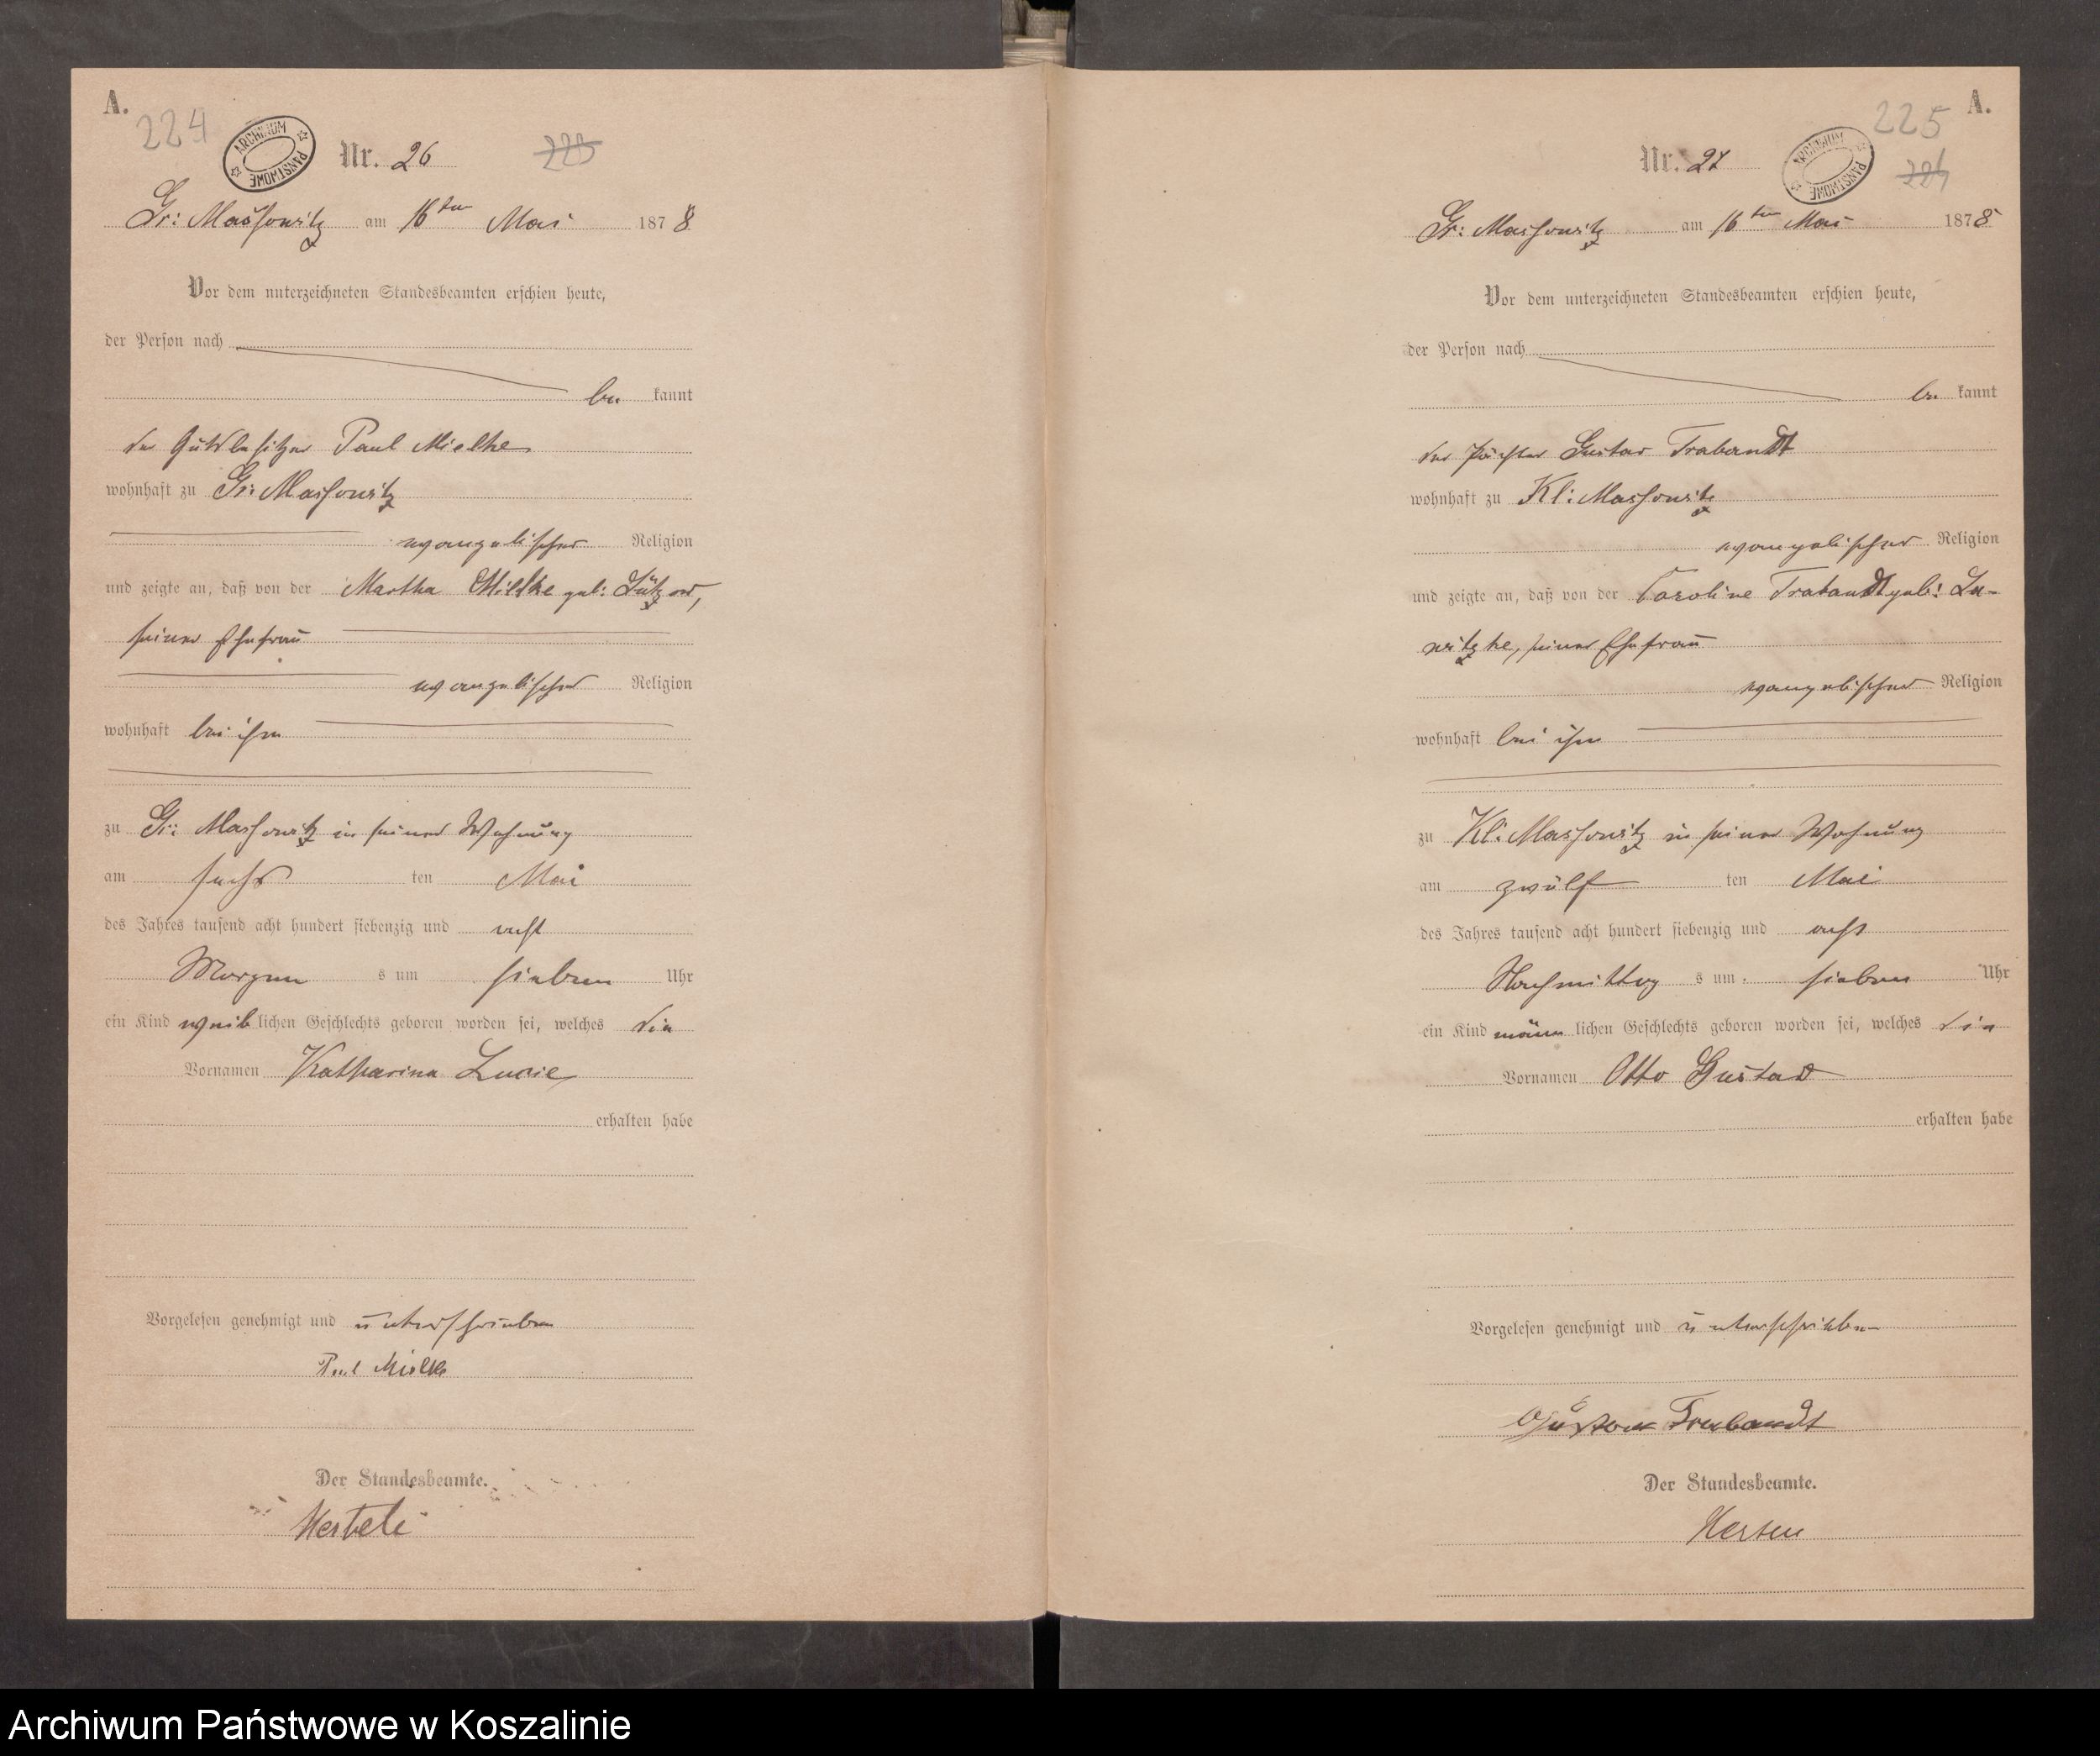 A.
224
ARCHIWUM PAŃSTWOWE
Nr. 26
225
Gr: Massowitz am 16ten Mai 1878
Vor dem unterzeichneten Standesbeamten erschien heute,
der Person nach
be kannt
der Gutsbesitzer Paul Mielke
wohnhaft zu Gr: Massowitz
evangelischer Religion
und zeigte an, daß von der Martha Mielke geb: Lützow,
seiner Ehefrau
evangelischer Religion
wohnhaft bei ihm
zu Gr: Massowitz in seiner Wohnung
am sechs ten Mai
des Jahres tausend acht hundert siebenzig und acht
Morgen s um sieben Uhr
ein Kind weib lichen Geschlechts geboren worden sei, welches die
Vornamen Katharina Lucie
erhalten habe
Vorgelesen genehmigt und unterschrieben
Paul Mielke
Der Standesbeamte.
A.
225
ARCHIWUM PAŃSTWOWE
Nr. 27
Gr: Massowitz am 16ten Mai 1878
Vor dem unterzeichneten Standesbeamten erschien heute,
der Person nach
be kannt
der Pächter Gustav Trabandt
wohnhaft zu Kl: Massowitz
evangelischer Religion
und zeigte an, daß von der Caroline Trabandt geb: La-
witzke, seiner Ehefrau
evangelischer Religion
wohnhaft bei ihm
zu Kl: Massowitz in seiner Wohnung
am zwölf ten Mai
des Jahres tausend acht hundert siebenzig und acht
Nachmittag s um sieben Uhr
ein Kind männ lichen Geschlechts geboren worden sei, welches die
Vornamen Otto Gustav
erhalten habe
Vorgelesen genehmigt und unterschrieben
Gustav Trabandt
Der Standesbeamte.
Archiwum Państwowe w Koszalinie